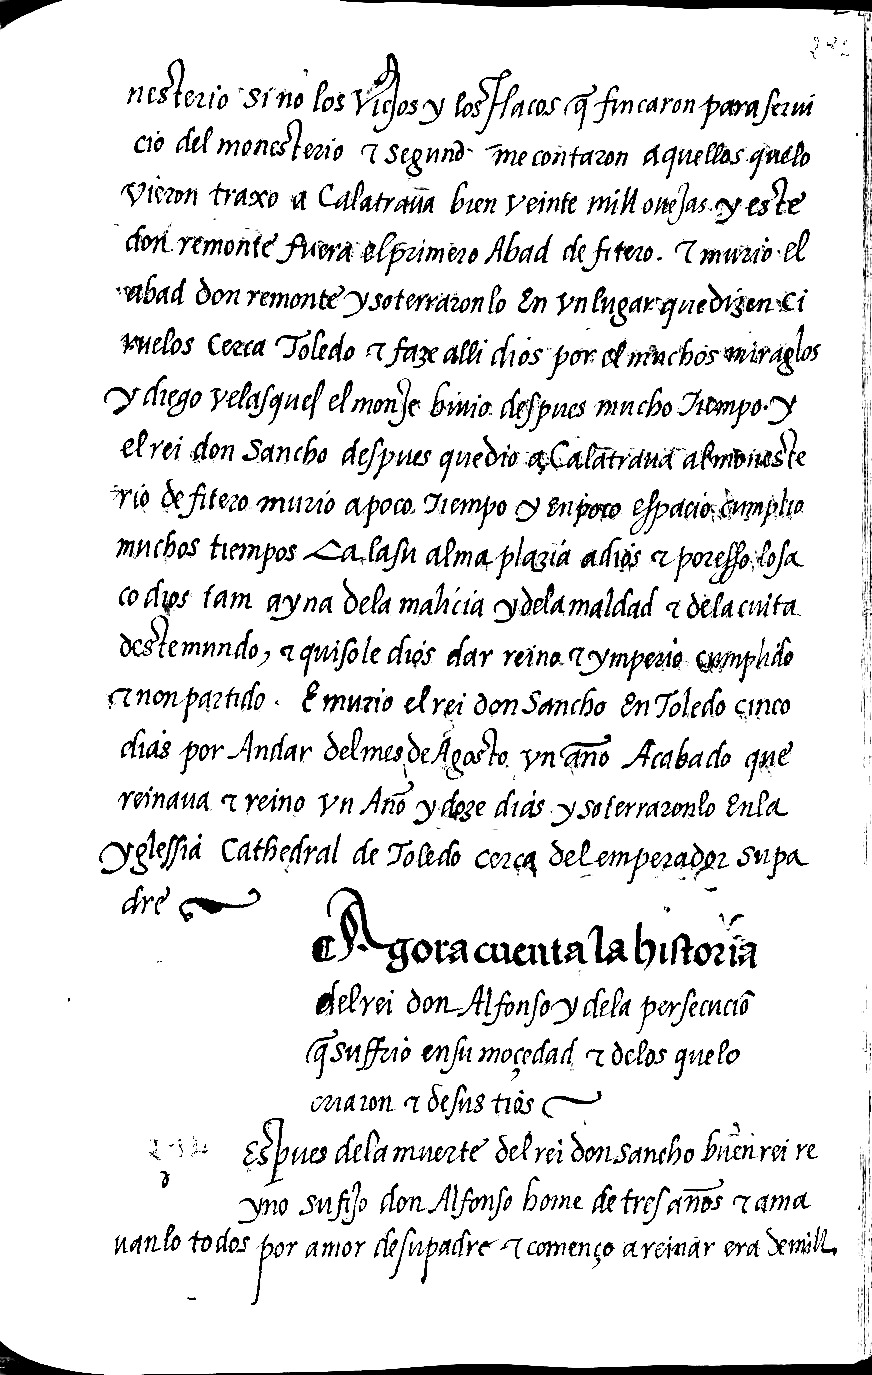 nesterio si no los Viejos y los flacos q̃ fincaron para serui
cio del monesterio ⁊ segund me contaron aquellos quelo
vieron traxo a Calatraua bien veinte mill ouejas. y este
don remonte fuera el primero Abad de fitero. ⁊ murio el
abad don remonte y soterraronlo En yn lugar que dizen Ci
ruelos Cerca Toledo ⁊ faze alli dios por el muchos miraglos
y diego velasques el monje biuio despues mucho Tiempo. y
el rei don Sancho despues que dio a Calatraua al moneste
rio de fitero murio a poco Tiempo y en poco espacio cumplio
muchos tiempos Ca la su alma plazia a dios ⁊ por esso lo sa
co dios tam ayna de la malicia y de la maldad ⁊ de la cuita
deste mundo, ⁊ quiso le dios dar reino ⁊ ymperio cumplido
⁊ non partido. E murio el rei don Sancho En Toledo cinco
dias por Andar del mes de Agosto yn año Acabado que
reinaua ⁊ reino yn Año y doze dias y soterraronlo En la
yglessia Cathedral de Toledo cerca del emperador su pa
dre
Agora cuenta la historia
del rei don Alfonso y dela persecuciõ
q̃ suffrio en su moçedad ⁊ de los quelo
criaron ⁊ de sus tios
Espues dela muerte del rei don Sancho buen rei re
yno su fijo don Alfonso home de tres años ⁊ ama
uanlo todos por amor de su padre ⁊ començo a reinar era de mill